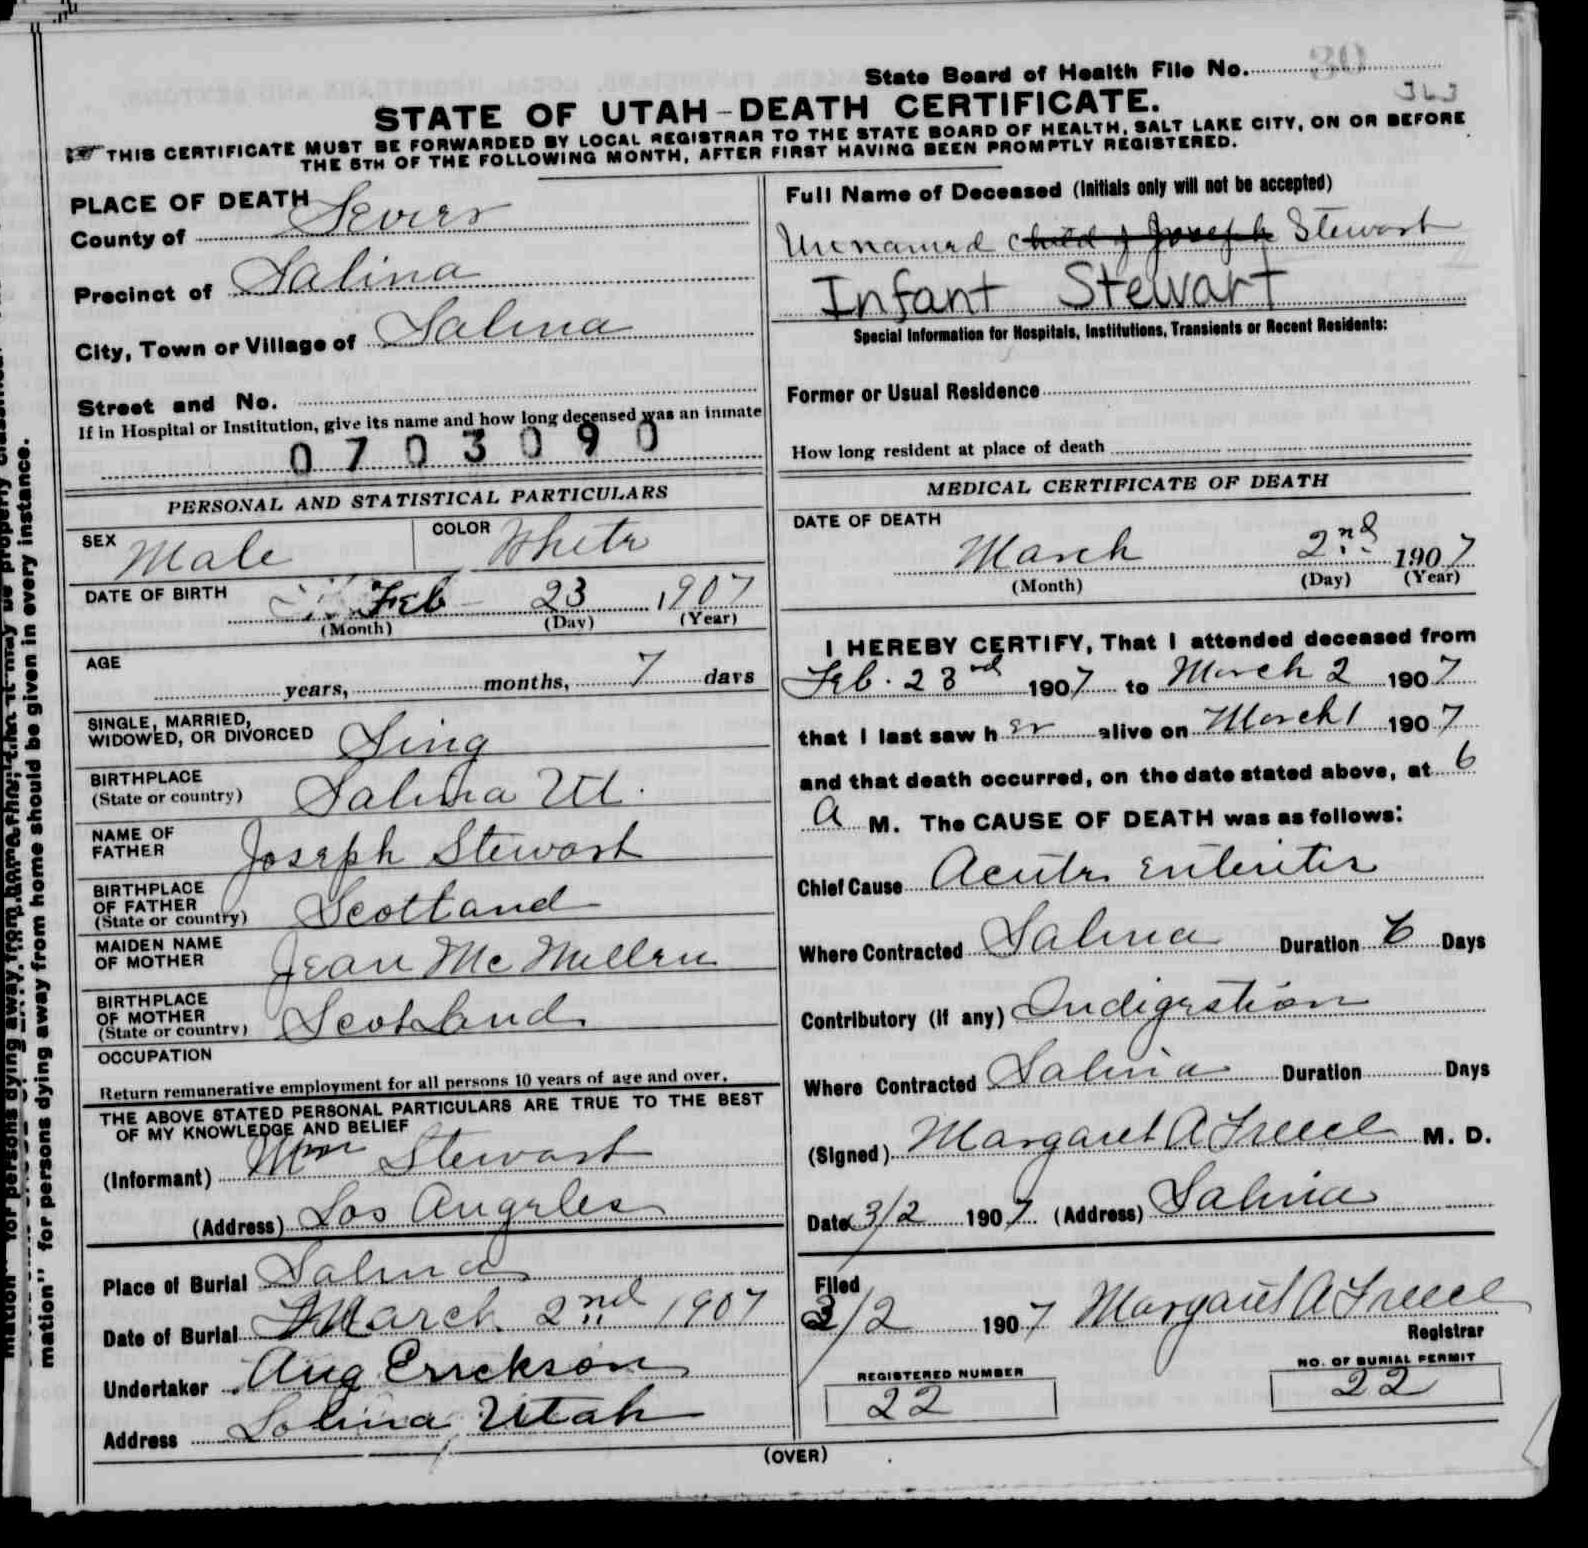 State Board of Health File No. 30
STATE OF UTAH-DEATH CERTIFICATE.
THIS CERTIFICATE MUST BE FORWARDED BY LOCAL REGISTRAR TO THE STATE BOARD OF HEALTH, SALT LAKE CITY, ON OR BEFORE
THE 5TH OF THE FOLLOWING MONTH, AFTER FIRST HAVING BEEN PROMPTLY REGISTERED.
PLACE OF DEATH
County of Sevier
Precinct of Salina
City, Town or Village of Salina
Street and No.
If in Hospital or Institution, give its name and how long deceased was an inmate
0703090
PERSONAL AND STATISTICAL PARTICULARS
SEX Male COLOR White
DATE OF BIRTH Feb 23 1907
(Month) (Day) (Year)
AGE
years, months, 7 days
SINGLE, MARRIED,
WIDOWED, OR DIVORCED Sing
BIRTHPLACE
(State or country) Salina Ut.
NAME OF
FATHER Joseph Stewart
BIRTHPLACE
OF FATHER
(State or country) Scotland
MAIDEN NAME
OF MOTHER Jean McMillen
BIRTHPLACE
OF MOTHER
(State or country) Scotland
OCCUPATION
Return remunerative employment for all persons 10 years of age and over.
THE ABOVE STATED PERSONAL PARTICULARS ARE TRUE TO THE BEST
OF MY KNOWLEDGE AND BELIEF
(Informant) Stewart
(Address) Los Angeles
Place of Burial Salina
Date of Burial March 2nd 1907
Undertaker Aug Errckson
Address Salina Utah
Full Name of Deceased (Initials only will not be accepted)
Unnamed child of Joseph Stewart
Infant Stewart
Special Information for Hospitals, Institutions, Transients or Recent Residents:
Former or Usual Residence
How long resident at place of death
MEDICAL CERTIFICATE OF DEATH
DATE OF DEATH
March 2nd 1907
(Month) (Day) (Year)
I HEREBY CERTIFY, That I attended deceased from
Feb. 23rd 1907 to March 2 1907
that I last saw h er alive on March 1 1907
and that death occurred, on the date stated above, at 6
a M. The CAUSE OF DEATH was as follows:
Chief Cause Acute Enteritis
Where Contracted Salina Duration 6 Days
Contributory (if any) Indigestion
Where Contracted Salina Duration Days
(Signed) Margaret A Freece M. D.
Date 3/2 1907 (Address) Salina
Filed
3/2 1907 Margaret A Freece
Registrar
REGISTERED NUMBER
22
NO. OF BURIAL PERMIT
22
(OVER)
mation" for persons dying away from home should be given in every instance.